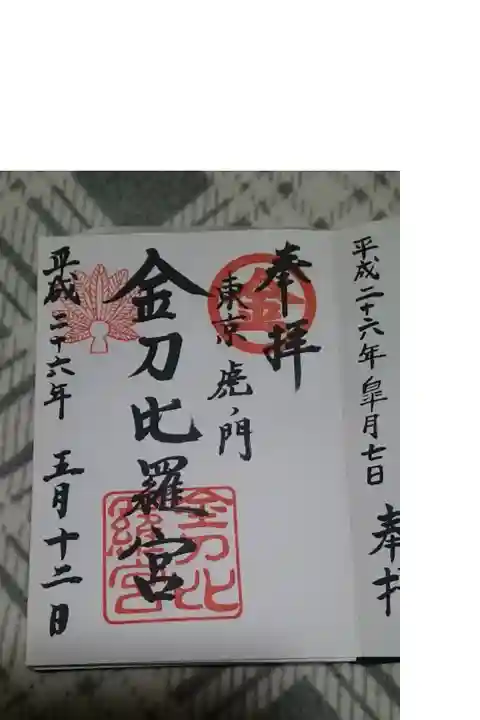 平成二十六年皐月七日
奉拝
奉拝
金
東京虎ノ門
金刀比羅宮
金刀比羅宮
平成二十六年五月十二日